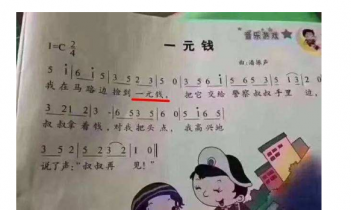 音乐游戏
一 元 钱
1=C 2/4
曲:潘振声
5 i | 6 i 5 | 3 5 2 3 | 5 0 | 3 5 6 i | 5 6 5 3 | 5 i 3 | 2 0 |
我在马路边捡到一元钱, 把它交给警察叔叔手里 边,
3 2 1 2 | 3 - | 6 5 3 5 | 6 0 | 5 i 6 5 |
叔叔拿着钱,对我把头点, 我高兴地
3 5 2 | 5 2 3 2 | 1 0 ‖
说了声:“叔叔再 见!”